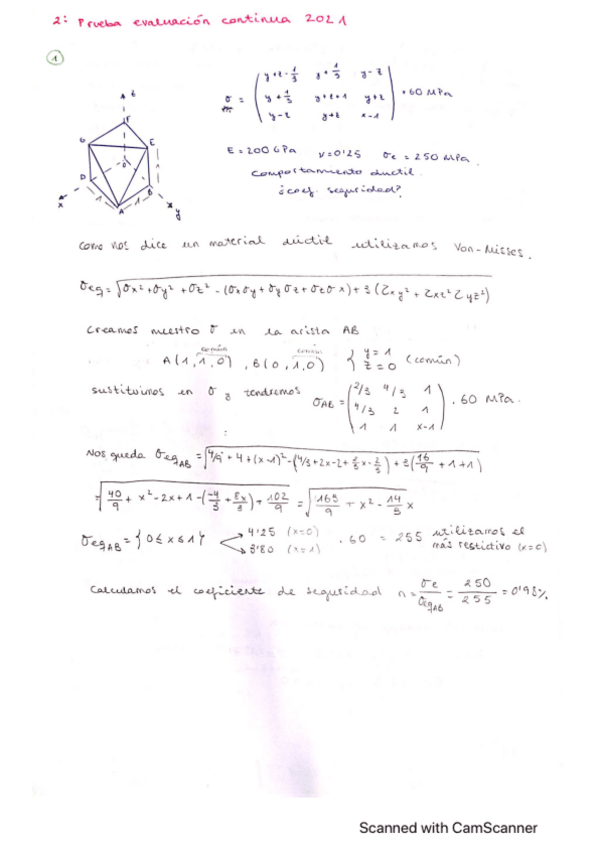 2: Prueba evaluación continua 2021
1
t
F
G
E
D
O
B
A
1
1
x
y
σ = ( y+z-1/3 y+1/3 y-z
y+1/3 y+z+1 y+z · 60 MPa
y-z y+z x-1 )
E = 200 GPa ν=0'25 σe = 250 MPa.
comportamiento ductil.
¿coef. seguridad?
Como nos dice un material dúctil utilizamos Von-Misses.
σeq = √σx²+σy²+σz² - (σxσy+σyσz+σzσx)+3(Zxy²+Zxz²Zyz²)
Creamos nuestro σ en la arista AB
común común
A(1,1,0), B(0,1,0) { y=1 z=0 (común)
sustituimos en σ y tendremos σAB = ( 2/3 4/3 1
4/3 2 1 · 60 MPa.
1 1 x-1 )
:
Nos queda σeqAB = √4/9 + 4 + (x-1)² - (4/3+2x-2+2/3x-2/3) + 3(16/9 + 1 + 1)
= √40/9 + x² - 2x + 1 - (-4/3 + 8x/3) + 102/9 = √163/9 + x² - 14/3 x
σeqAB = {0≤x≤1} 4'25 (x=0) · 60 = 255 utilizamos el
3'80 (x=1) más restictivo (x=0)
Calculamos el coeficiente de seguridad n = σe/σeqAB = 250/255 = 0'98%.
Scanned with CamScanner